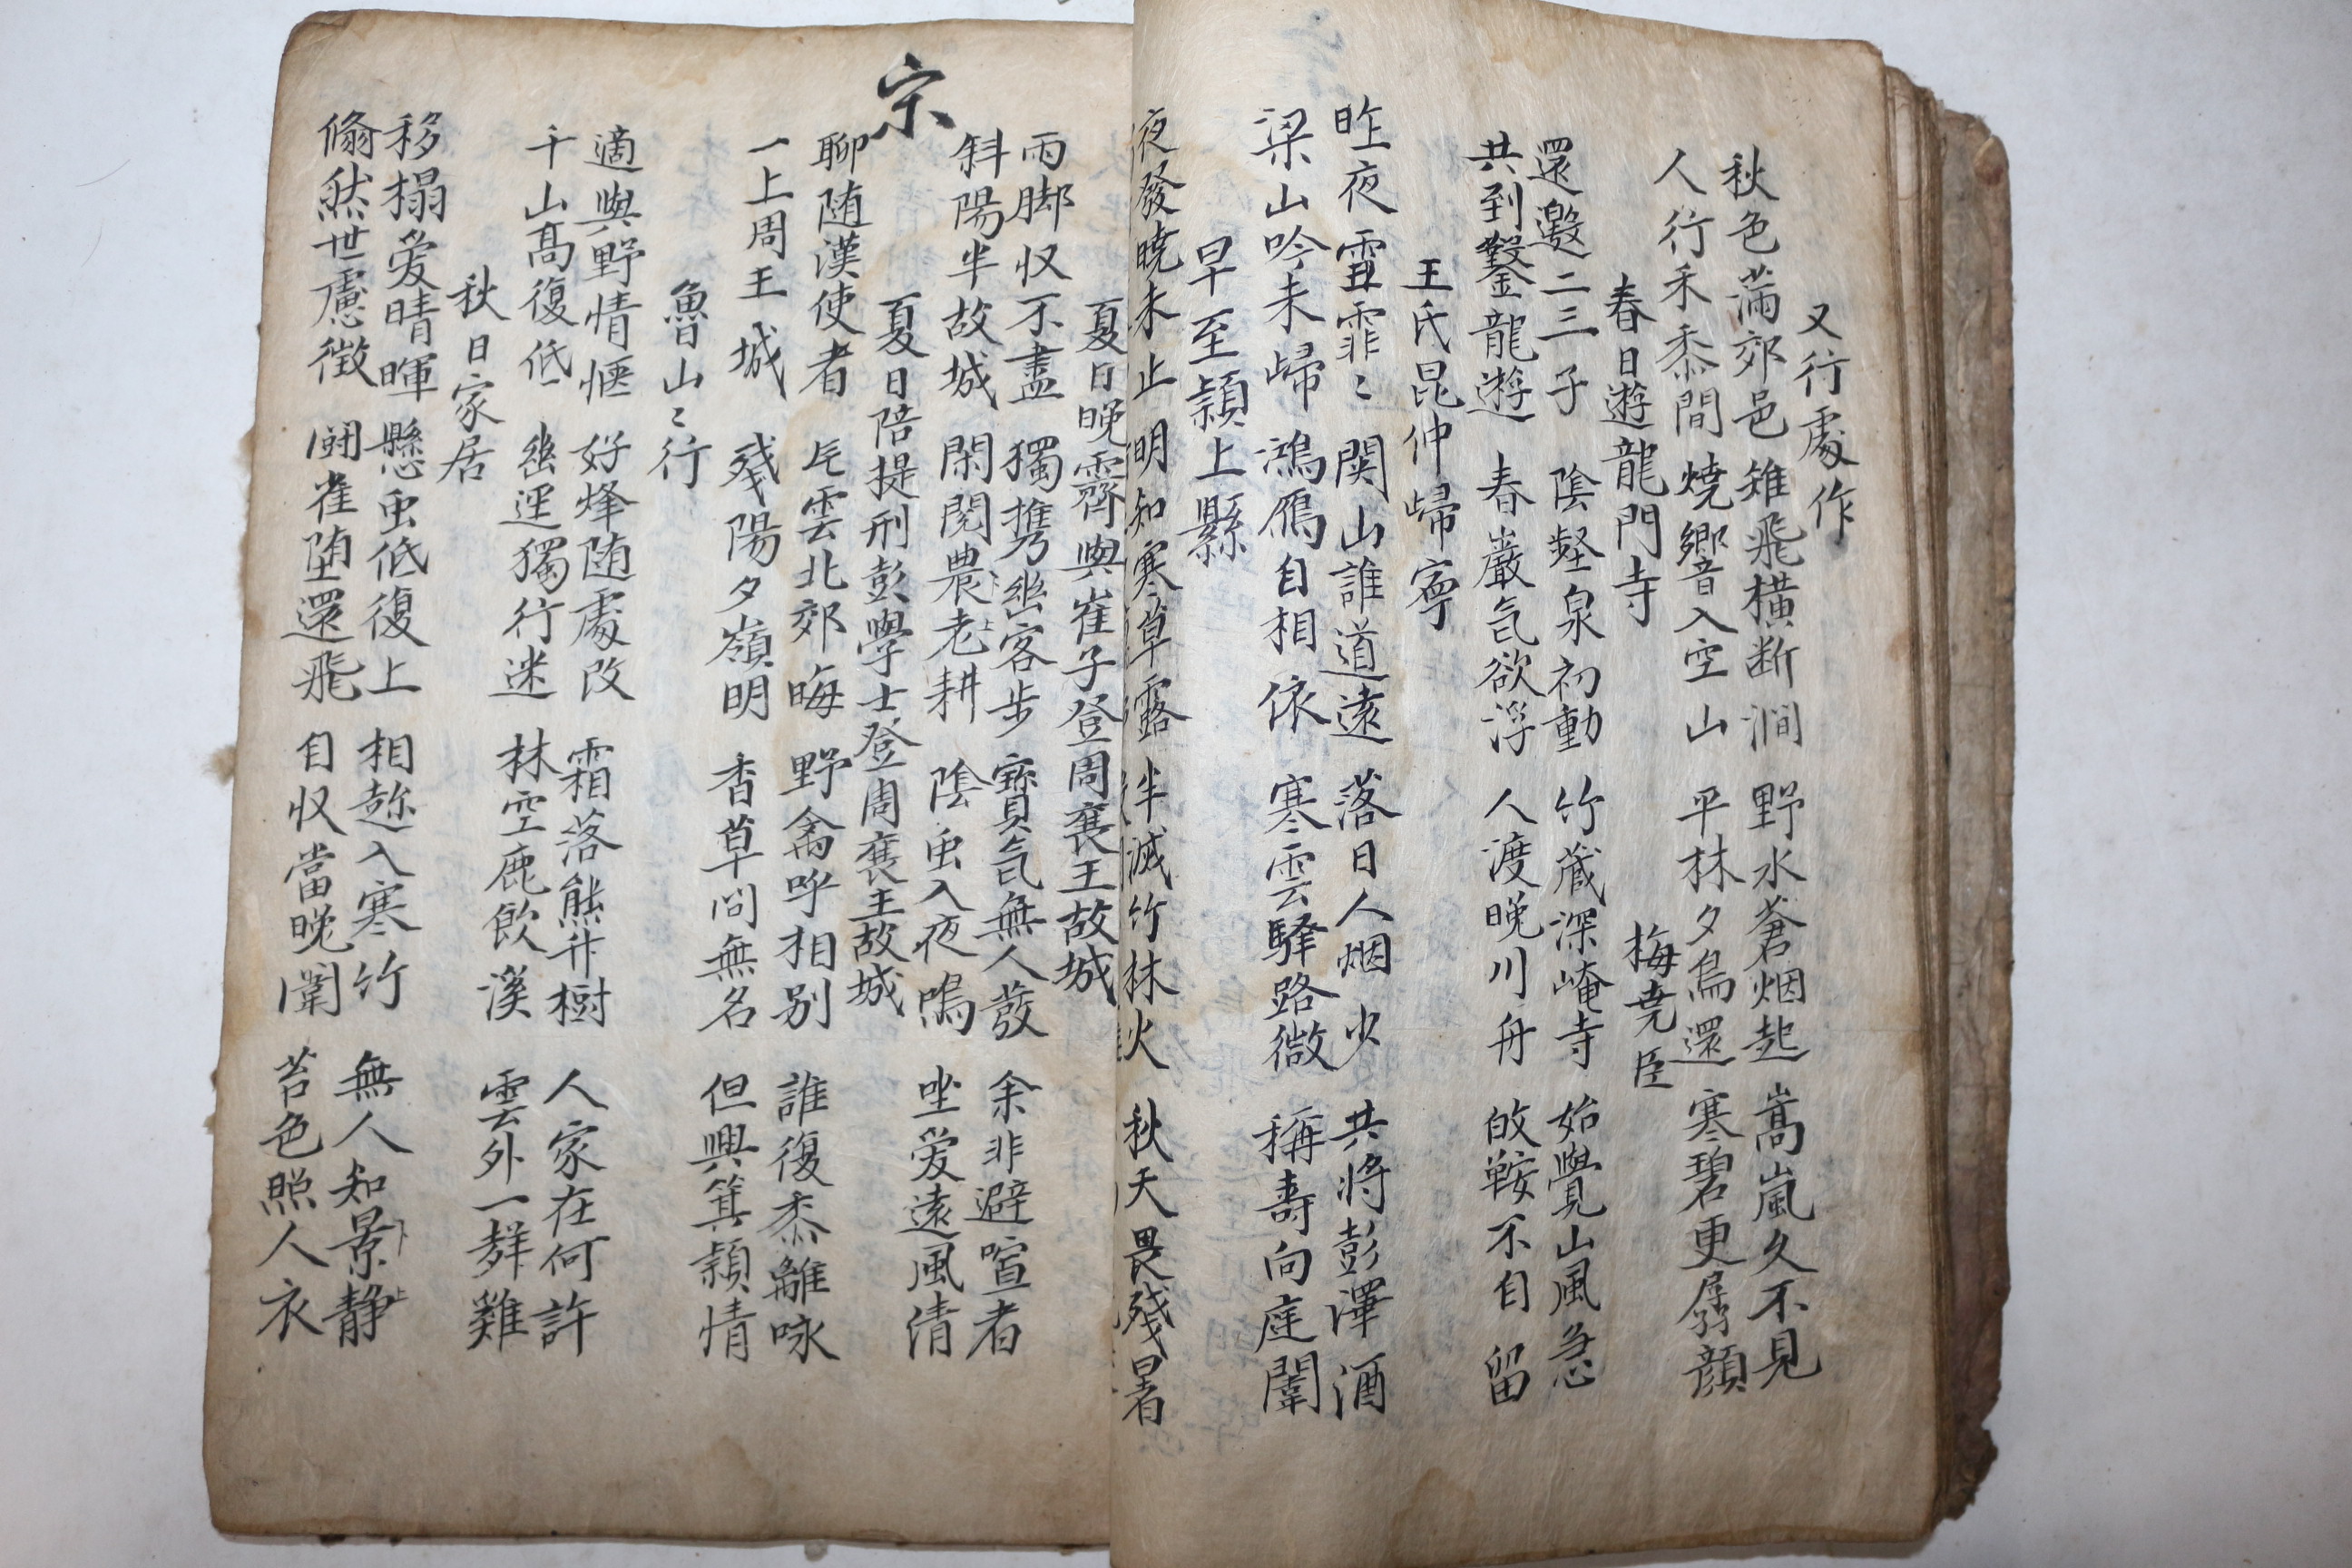 又行處作
秋色滿郊邑 雉飛橫断澗 野水蒼烟起 嵩嵐久不見
人行禾黍間 燒響入空山 平林夕鳥還 寒碧更孱顔
春日遊龍門寺 梅堯臣
還邀二三子 陰壑泉初動 竹蔵深崦寺 始覺山風急
共到鑿龍遊 春巖气欲浮 人渡晚川舟 的鞍不自留
王氏昆仲歸寧
昨夜雪霏〻 関山誰道遠 落日人烟少 共將彭澤酒
梁山吟未歸 鴻鴈自相依 寒雲驛路微 稱壽向庭闈
早至頴上縣
夜發曉未止 明知寒草露 半滅竹林火 秋天畏殘暑
宗
夏日晚霽與崔子登周襄王故城
雨脚収不盡 獨携幽客步 寶气無人發 余非避喧者
斜陽半故城 閑閱農老耕 陰虫入夜鳴 坐爱遠風清
夏日陪提刑彭學士登周襄王故城
聊随漢使者 片雲北郊晦 野禽呼相别 誰復黍離咏
一上周王城 殘陽夕嶺明 香草問無名 但興箕頴情
魯山〻行
適與野情愜 好烽随處改 霜落熊升樹 人家在何許
千山髙復低 幽逕獨行迷 林空鹿飲溪 雲外一群雞
秋日家居
移榻爱晴暉 懸虫低復上 相趂入寒竹 無人知景静
翛然世慮徴 鬪雀堕還飛 自収當晚闈 苔色照人衣